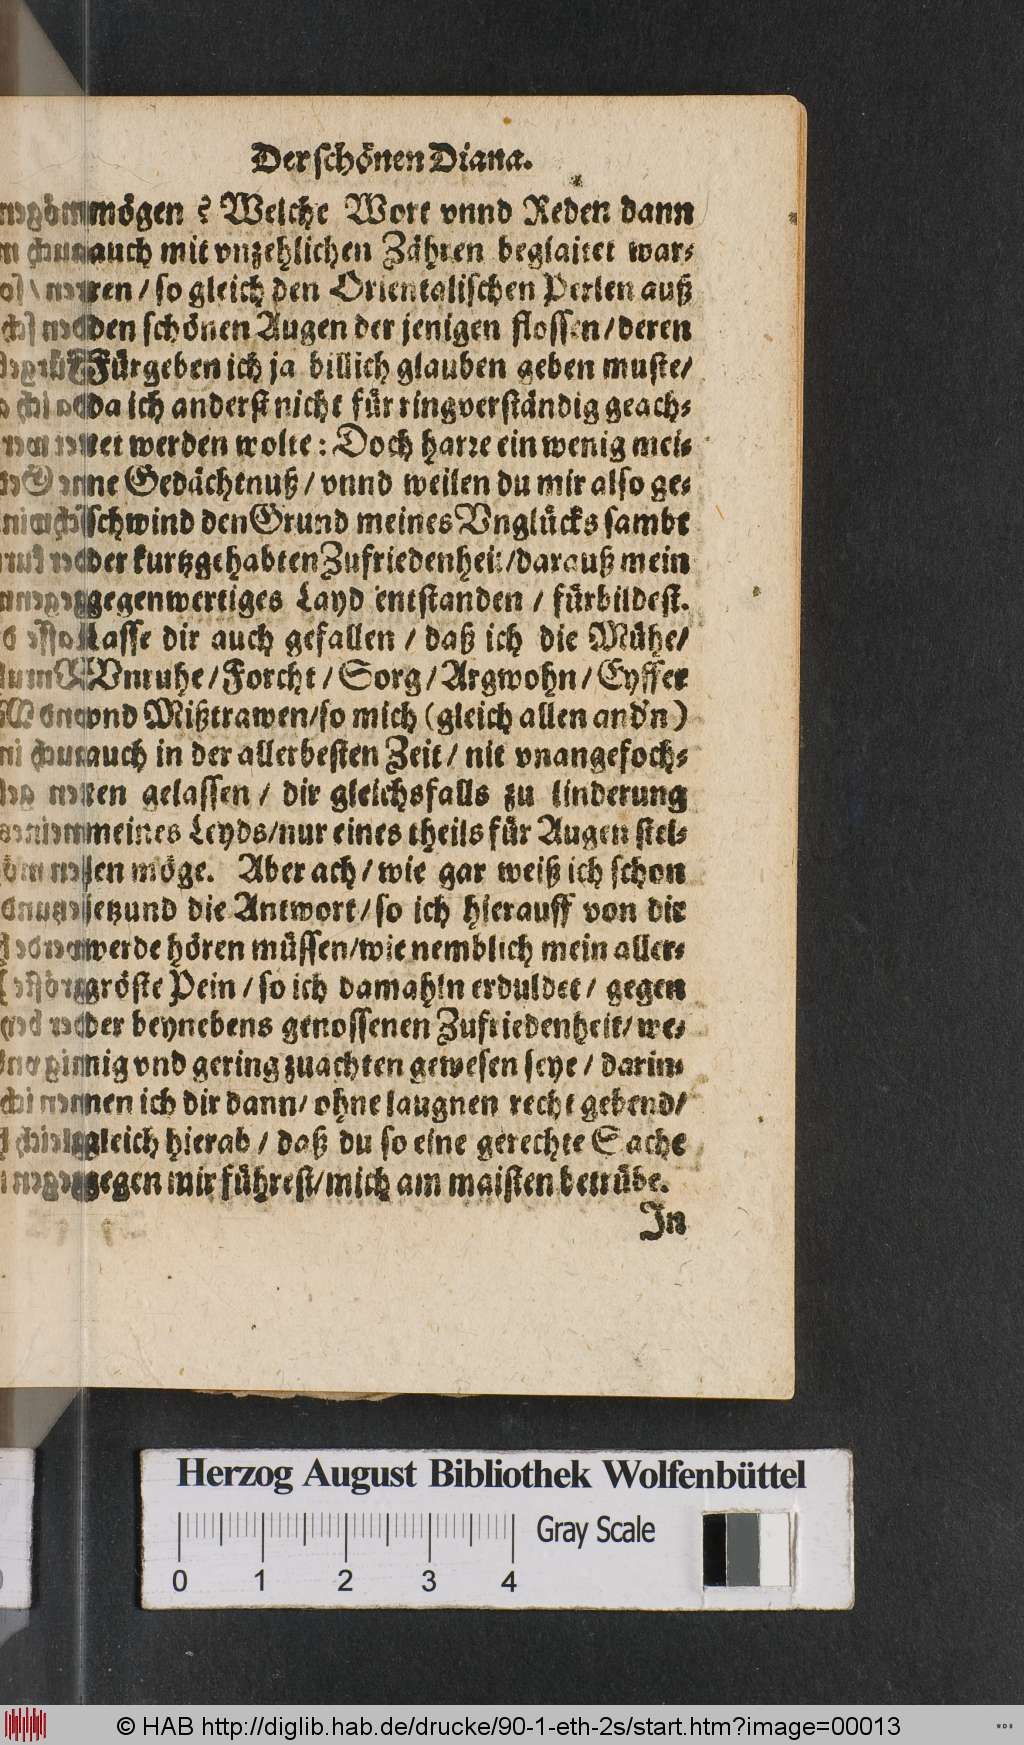 Der schönen Diana.
mögen ? Welche Wort vnnd Reden dann
auch mit vnzehlichen Zähren beglaitet war-
ren / so gleich den Orientalischen Perlen auß
den schönen Augen der jenigen flossen / deren
Fürgeben ich ja billich glauben geben muste /
da ich anderst nicht für ringverständig geach-
tet werden wolte : Doch harre ein wenig mei-
ne Gedächtnuß / vnnd weilen du mir also ge-
schwind den Grund meines Vnglücks sambt
der kurtzgehabten Zufriedenheit / darauß mein
gegenwertiges Layd entstanden / fürbildest.
Lasse dir auch gefallen / daß ich die Mühe /
Vnruhe / Forcht / Sorg / Argwohn / Eyffer
vnd Mißtrawen / so mich (gleich allen and'n)
auch in der allerbesten Zeit / nit vnangefoch-
ten gelassen / dir gleichsfalls zu linderung
meines Leyds / nur eines theils für Augen stel-
len möge. Aber ach / wie gar weiß ich schon
jetzund die Antwort / so ich hierauff von dir
werde hören müssen / wie nemblich mein aller-
gröste Pein / so ich damahln erduldet / gegen
der beynebens genossenen Zufriedenheit / we-
nig vnd gering zuachten gewesen seye / darin-
nen ich dir dann / ohne laugnen recht gebend /
gleich hierab / daß du so eine gerechte Sache
gegen mir führest / mich am maisten betrübe.
In
Herzog August Bibliothek Wolfenbüttel
Gray Scale
0 1 2 3 4
© HAB http://diglib.hab.de/drucke/90-1-eth-2s/start.htm?image=00013